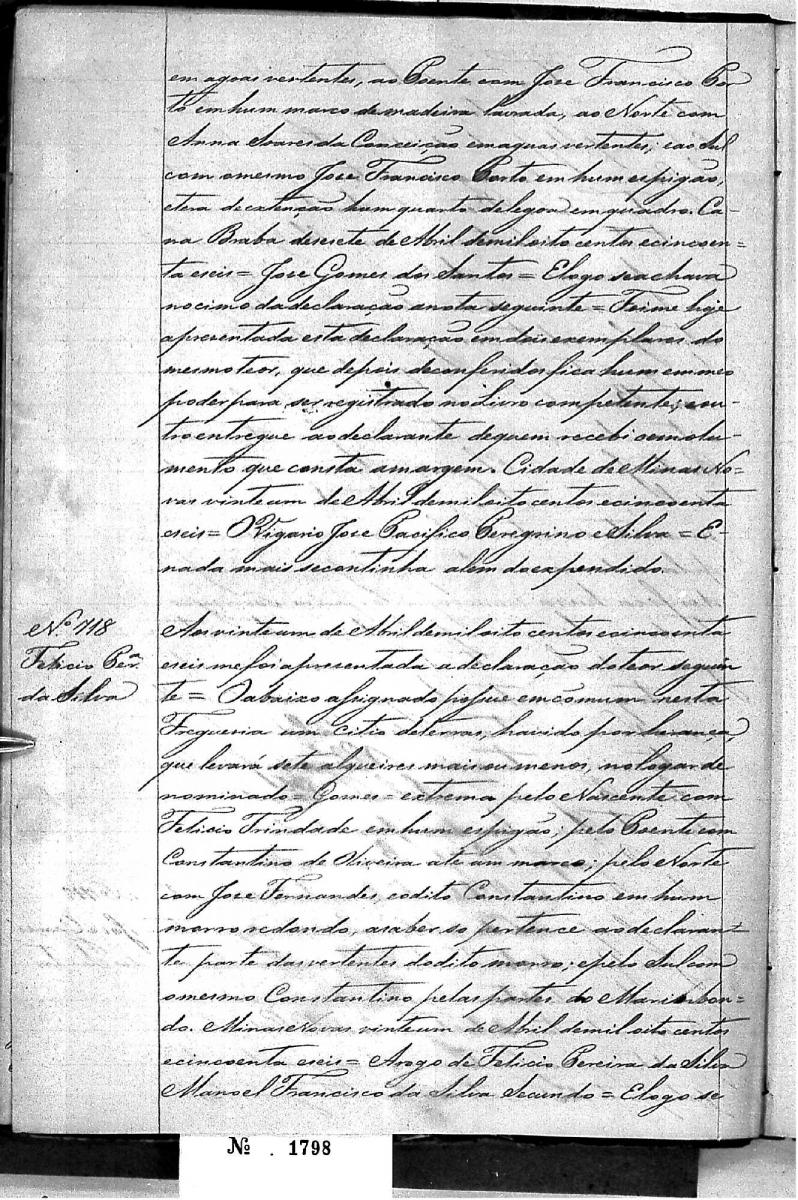 em agoas vertentes, ao Poente com Jose Francisco Por
to em hum marco de madeira lavrada, ao Norte com
Anna Soares da Conceição em aguas vertentes; e ao Sul
com o mesmo Jose Francisco Porto em hum espigão,
e tera de extenção hum quarto de legoa em quadro. Ca-
na Braba desesete de Abril de mil oito centos e cincoen=
ta e seis = Jose Gomes dos Santos = E logo se achava
no cimo da declaração a nota seguinte = Foi me hoje
apresentada esta declaração em dois exemplares do
mesmo teor, que depois de conferidos fica hum em meo
poder para ser registrado no Livro competente; e ou-
tro entregue ao declarante de quem recebi o emolu-
mento que consta a margem. Cidade de Minas No-
vas vinte um de Abril de mil oito centos e cincoenta
e seis = O Vigario Jose Pacifico Peregrino e Silva = E-
nada mais se continha alem do expendido.
Nº 718
Felicio Perª
da Silva
Aos vinte um de Abril de mil oito centos e cincoenta
e seis me foi apresentada a declaração do teor seguin
te = O abaixo assignado possue em comum nesta
Freguesia um citio de terras, havido por herança,
que levara sete alqueires mais ou menos, no logar de
nominado = Gomes = extrema pelo Nascente com
Felicio Trindade em hum espigão; pelo Poente com
Constantino de Oliveira ate um marco; pelo Norte
com Jose Fernandes, e o dito Constantino em hum
morro redondo, a saber so pertence ao declaran=
te parte das vertentes do dito morro; e pelo Sul com
o mesmo Constantino pelas partes do Maribon=
do. Minas Novas vinte um de Abril de mil oito centos
e cincoenta e seis = A rogo de Felicio Pereira da Silva
Manoel Francisco da Silva Secundo = E logo se
Nº . 1798